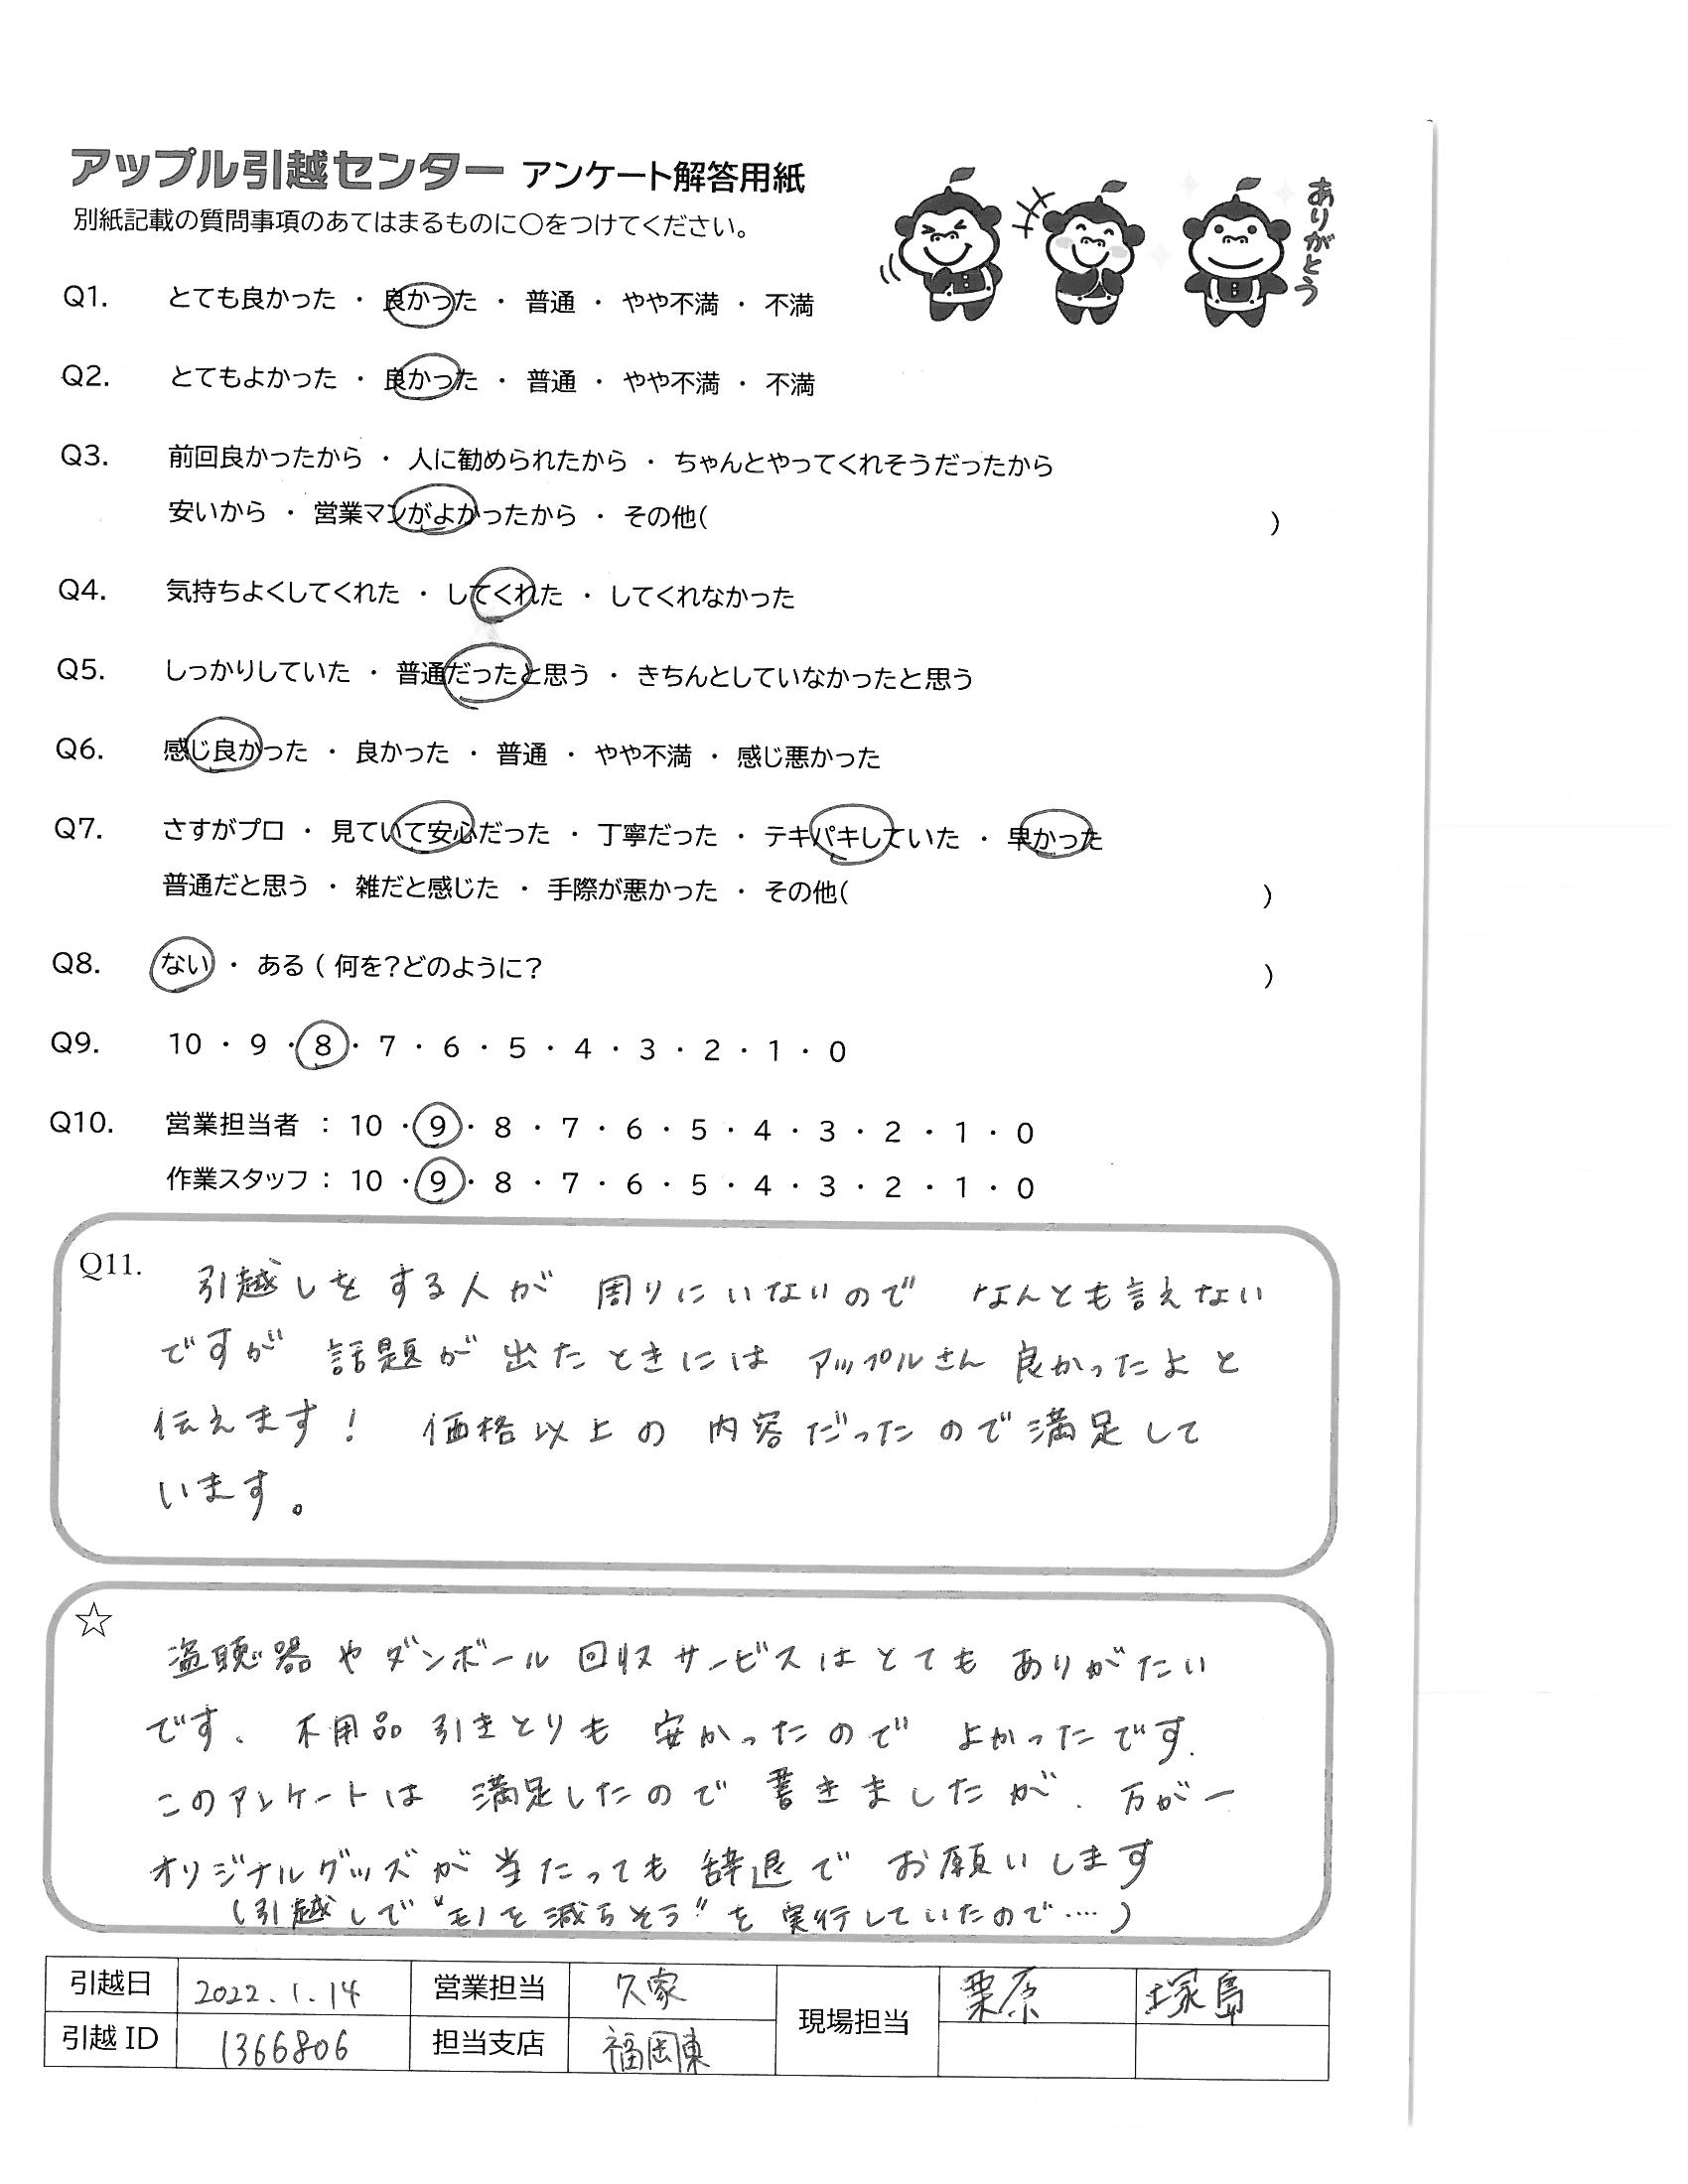 アップル引越センター アンケート解答用紙
別紙記載の質問事項のあてはまるものに〇をつけてください。
ありがとう
Q1. とても良かった ・ 良かった ・ 普通 ・ やや不満 ・ 不満
Q2. とてもよかった ・ 良かった ・ 普通 ・ やや不満 ・ 不満
Q3. 前回良かったから ・ 人に勧められたから ・ ちゃんとやってくれそうだったから
安いから ・ 営業マンがよかったから ・ その他( )
Q4. 気持ちよくしてくれた ・ してくれた ・ してくれなかった
Q5. しっかりしていた ・ 普通だったと思う ・ きちんとしていなかったと思う
Q6. 感じ良かった ・ 良かった ・ 普通 ・ やや不満 ・ 感じ悪かった
Q7. さすがプロ ・ 見ていて安心だった ・ 丁寧だった ・ テキパキしていた ・ 早かった
普通だと思う ・ 雑だと感じた ・ 手際が悪かった ・ その他( )
Q8. ない ・ ある ( 何を?どのように? )
Q9. 10 ・ 9 ・ 8 ・ 7 ・ 6 ・ 5 ・ 4 ・ 3 ・ 2 ・ 1 ・ 0
Q10. 営業担当者 : 10 ・ 9 ・ 8 ・ 7 ・ 6 ・ 5 ・ 4 ・ 3 ・ 2 ・ 1 ・ 0
作業スタッフ : 10 ・ 9 ・ 8 ・ 7 ・ 6 ・ 5 ・ 4 ・ 3 ・ 2 ・ 1 ・ 0
Q11. 引越しをする人が 周りにいないので なんとも言えない
ですが 話題が出たときには アップルさん 良かったよと
伝えます! 価格以上の 内容だったので満足して
います。
☆
盗聴器やダンボール回収サービスはとてもありがたい
です、不用品引きとりも 安かったので よかったです.
このアンケートは 満足したので 書きましたが、万が一
オリジナルグッズが当たっても 辞退で お願いします
(引越しで“モノを減らそう”を実行していたので‥‥)
引越日 2022.1.14 営業担当 久家 現場担当 栗原 塚島
引越 ID 1366806 担当支店 福岡東